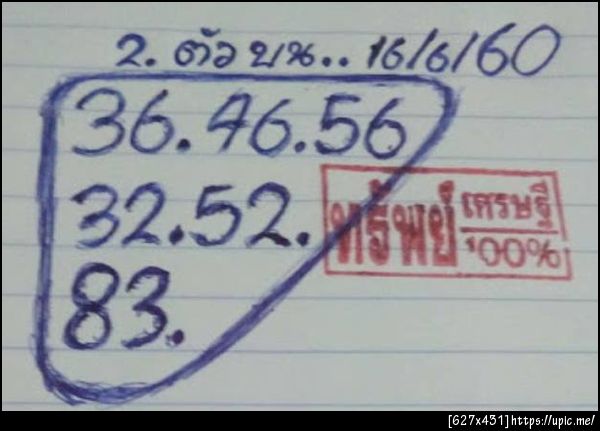 2. ตัว บน.. 16/6/60
36. 46. 56
32. 52.
83.
ทรัพย์ เศรษฐี
100%
[627x451]https://upic.me/